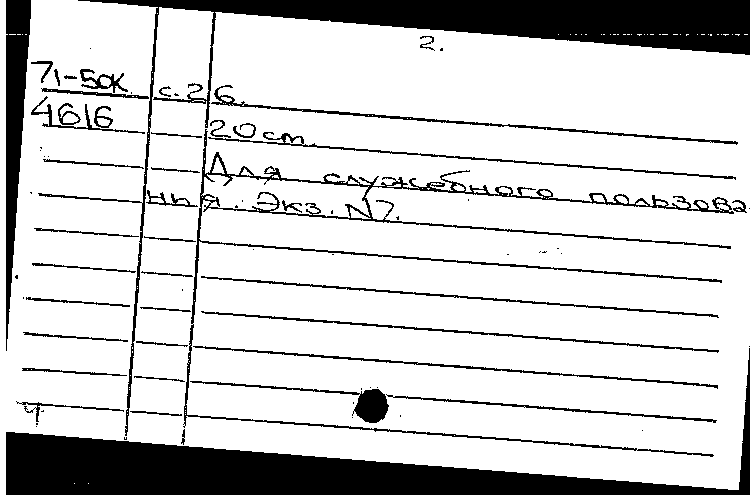 2.
71-50К с. 26.
4616 20 cm.
Для служебного пользова
ния. Экз. N7.
Ч